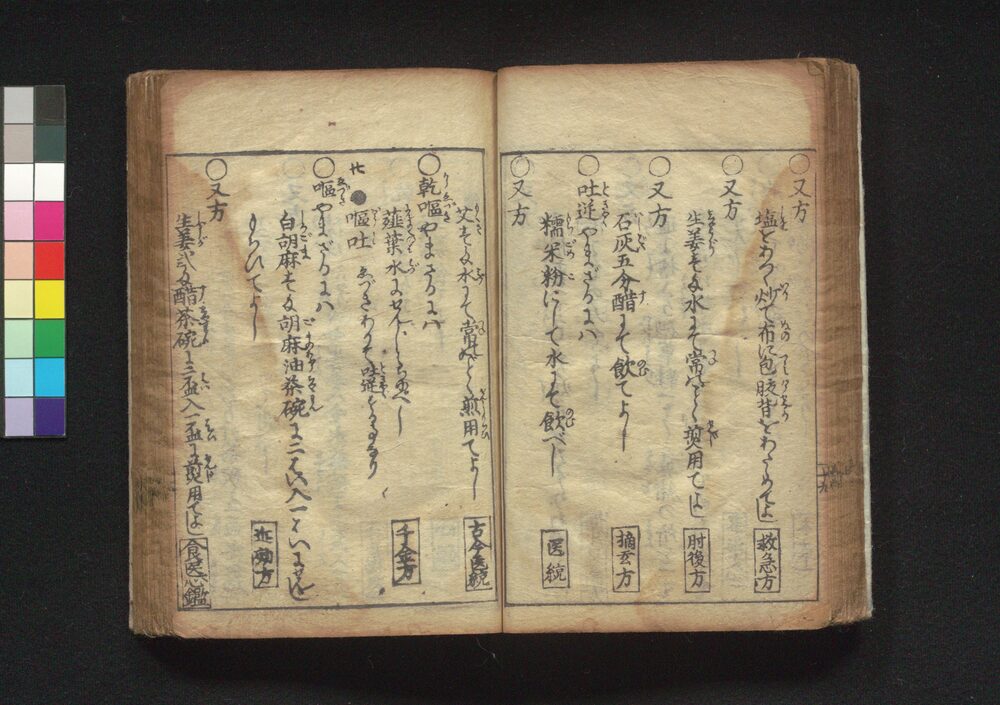 ○又方
塩をあつく炒て布に包腰背をあたゝめてよし 救急方
○又方
生姜をゝ水にて常のごとく煎用てよし 肘後方
○又方
石灰五分醋にて飲てよし 摘玄方
○吐逆やまざるには
糯米粉にして水にて飲べし 医統
○又方
水にて常のごとく煎用てよし 古今医統
○乾嘔やまざるには
薤葉水にせんじ 千金方
●嘔吐
○嘔やまざるには
白胡麻 胡麻油茶碗に二はい入一はいにせんじ
もちひてよし
○又方
生姜 醋茶碗に三盃入一盃に煎用てよし 食医心鑑